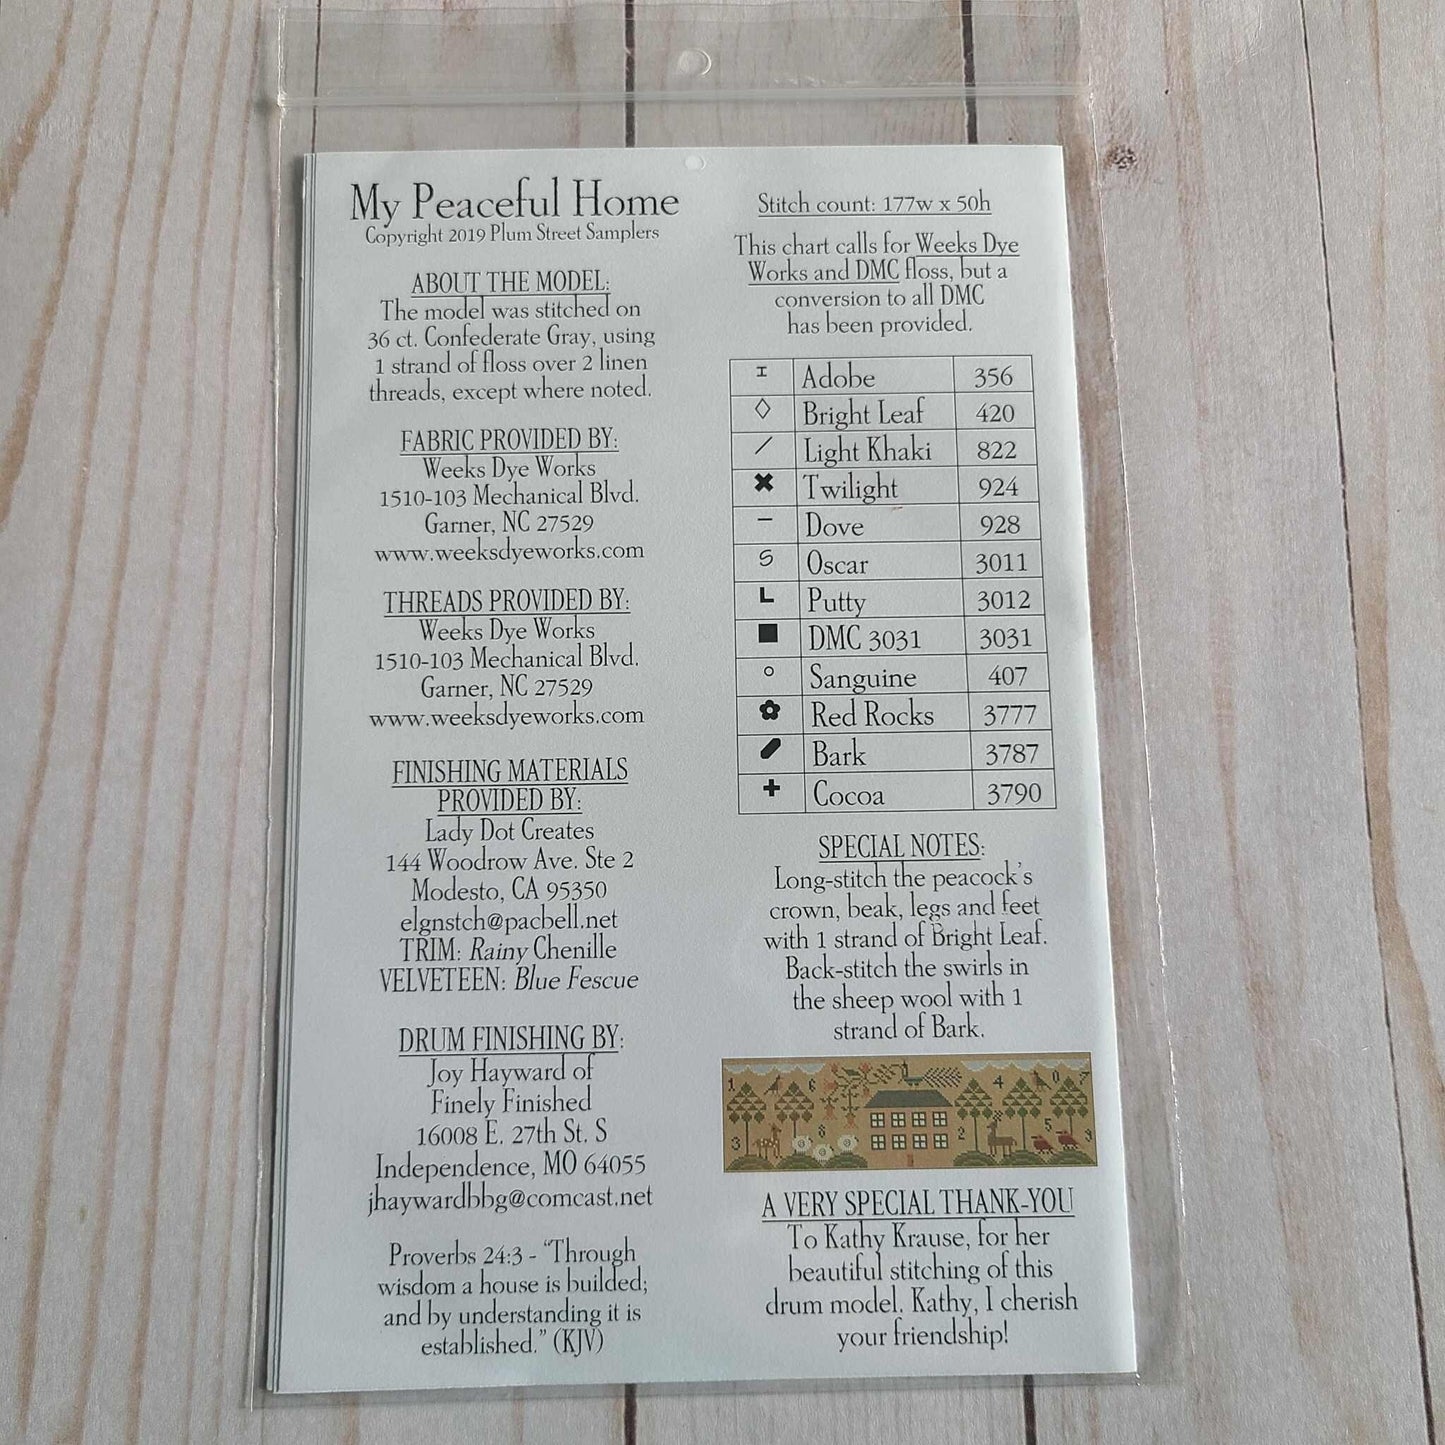 My Peaceful Home
Copyright 2019 Plum Street Samplers
ABOUT THE MODEL:
The model was stitched on
36 ct. Confederate Gray, using
1 strand of floss over 2 linen
threads, except where noted.
FABRIC PROVIDED BY:
Weeks Dye Works
1510-103 Mechanical Blvd.
Garner, NC 27529
www.weeksdyeworks.com
THREADS PROVIDED BY:
Weeks Dye Works
1510-103 Mechanical Blvd.
Garner, NC 27529
www.weeksdyeworks.com
FINISHING MATERIALS
PROVIDED BY:
Lady Dot Creates
144 Woodrow Ave. Ste 2
Modesto, CA 95350
elgnstch@pacbell.net
TRIM: Rainy Chenille
VELVETEEN: Blue Fescue
DRUM FINISHING BY:
Joy Hayward of
Finely Finished
16008 E. 27th St. S
Independence, MO 64055
jhaywardbbg@comcast.net
Proverbs 24:3 - “Through
wisdom a house is builded;
and by understanding it is
established.” (KJV)
Stitch count: 177w x 50h
This chart calls for Weeks Dye
Works and DMC floss, but a
conversion to all DMC
has been provided.
Adobe 356
Bright Leaf 420
Light Khaki 822
Twilight 924
Dove 928
Oscar 3011
Putty 3012
DMC 3031 3031
Sanguine 407
Red Rocks 3777
Bark 3787
Cocoa 3790
SPECIAL NOTES:
Long-stitch the peacock's
crown, beak, legs and feet
with 1 strand of Bright Leaf.
Back-stitch the swirls in
the sheep wool with 1
strand of Bark.
1 6 4 0 7
3 8 2 5 9
A VERY SPECIAL THANK-YOU
To Kathy Krause, for her
beautiful stitching of this
drum model. Kathy, I cherish
your friendship!